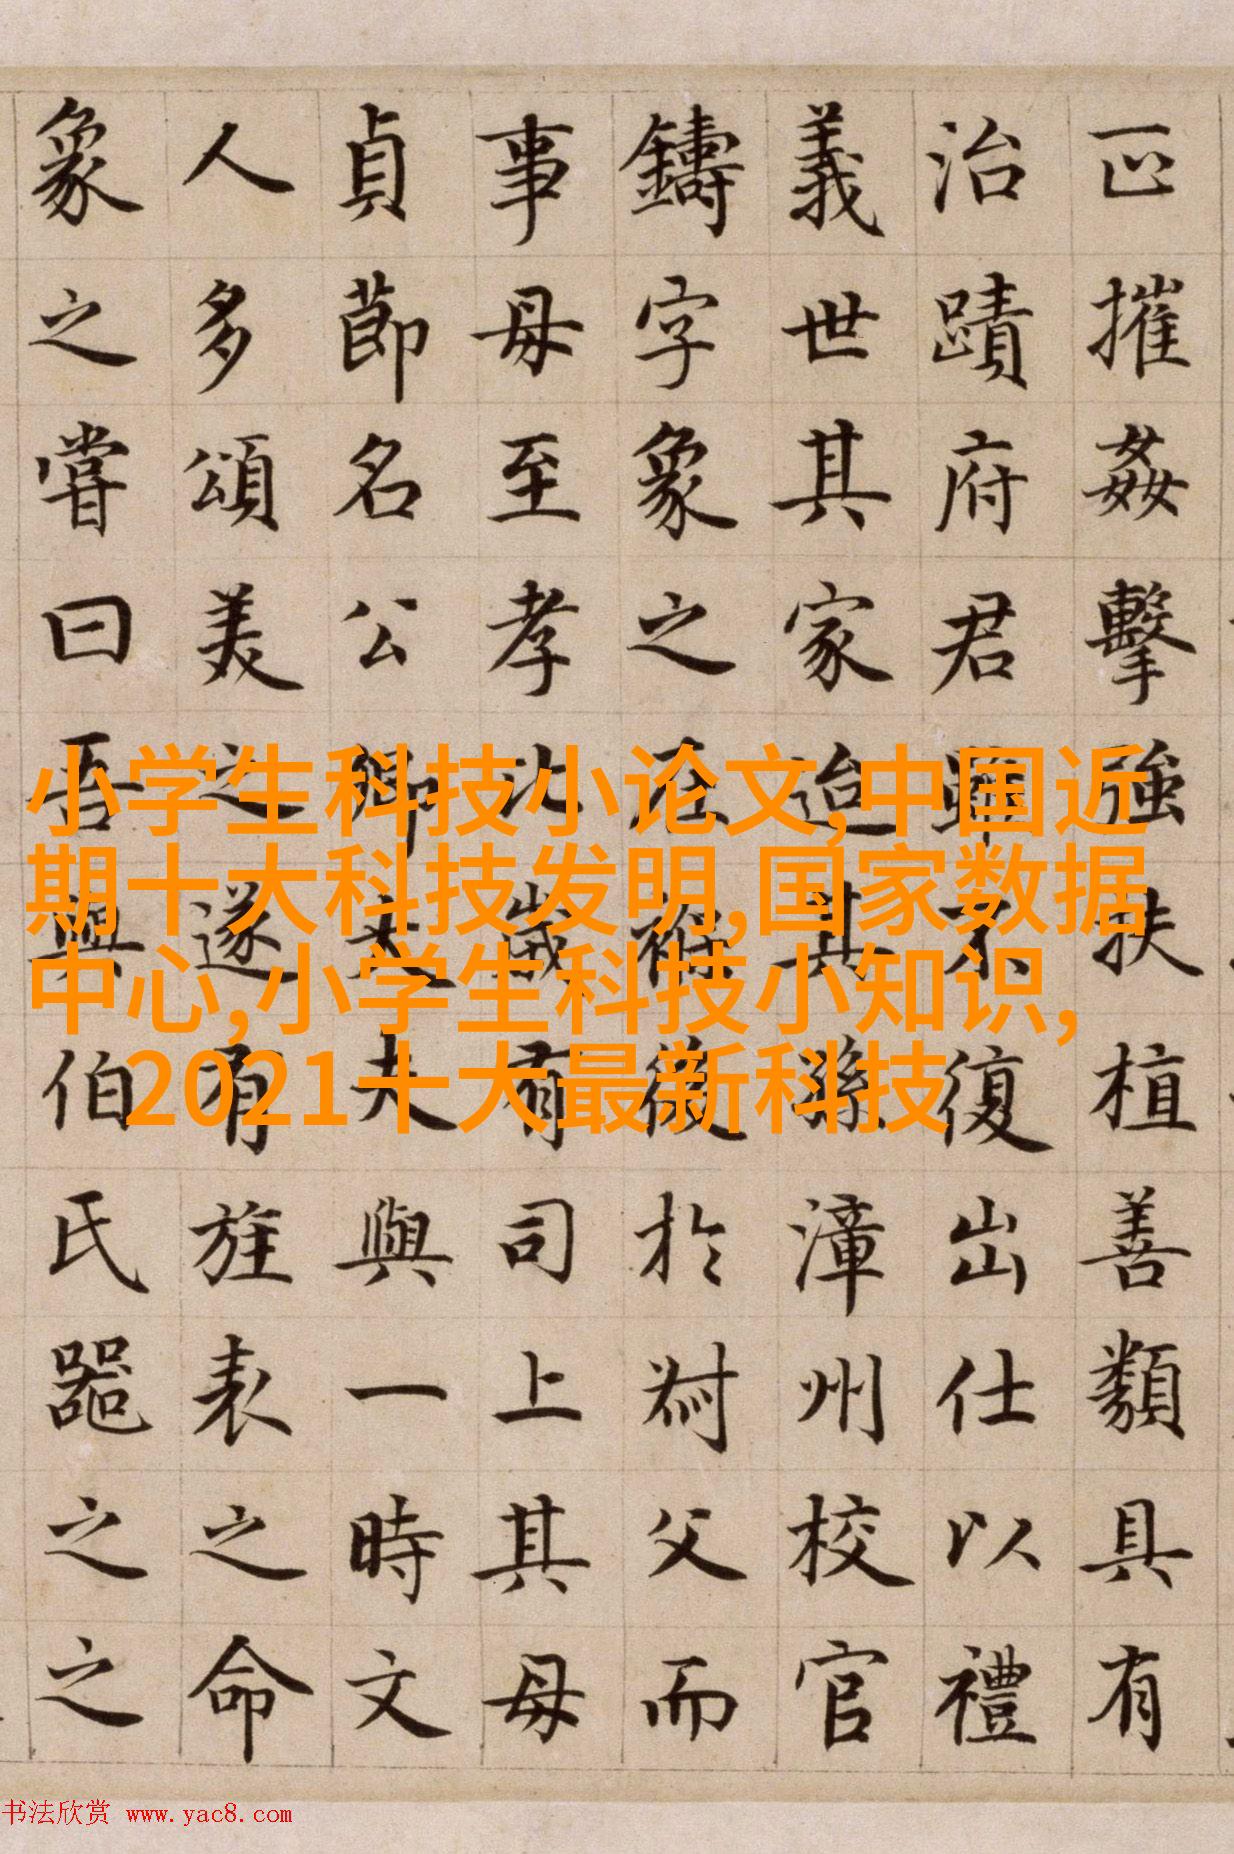 正摧姦擊強扶植善類具有
治蹟府君雖不復出仕以禮
義世其家迨其孫漳州校官
鑄字象之在褓後於父而
事母至孝比歲有司上其母
貞節名公卿大夫與一時文
人多頌美之遂有旌表之命
象之嘗曰吾與伯氏噐之之
小学生科技小论文,中国近
期十大科技发明,国家数据
中心,小学生科技小知识,
2021十大最新科技
书法欣赏 www.yac8.com